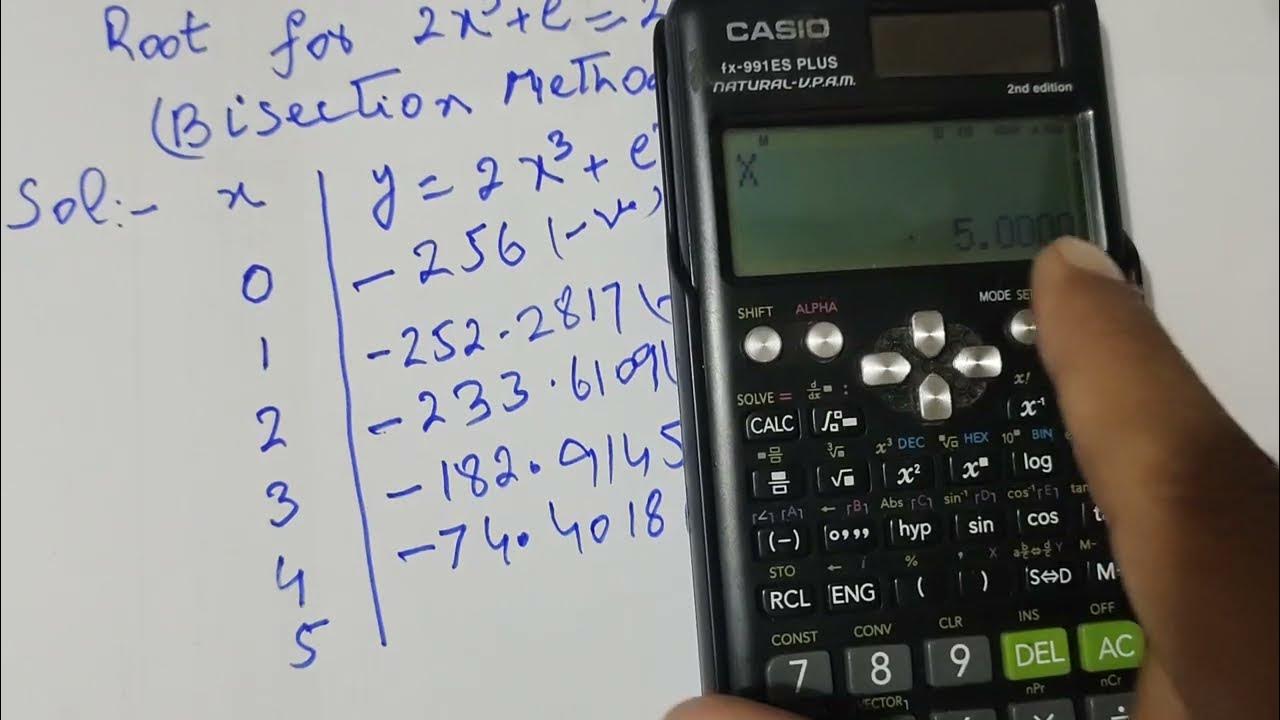 Root for 2x³+e = 2
(Bisection Method
Sol:- x y = 2x³ + e
0 -256 (-ve)
1 -252.2817 (-
2 -233.6109 (
3 -182.9145
4 -74.4018
5
CASIO
fx-991ES PLUS
NATURAL-V.P.A.M.
2nd edition
M
X
5.0000
SHIFT ALPHA MODE SET
SOLVE = d/dx :
CALC ∫ x! x⁻¹
x³ DEC ˣ√ HEX 10ˣ BIN
√ x² x log
∠ A ← B Abs C sin⁻¹ D cos⁻¹ E tan
(-) °,,, hyp sin cos t
STO ← i % , X a b/c⇔d/c Y M-
RCL ENG ( ) S⇔D M
CONST CONV CLR INS OFF
7 8 9 DEL AC
VECTOR nPr nCr